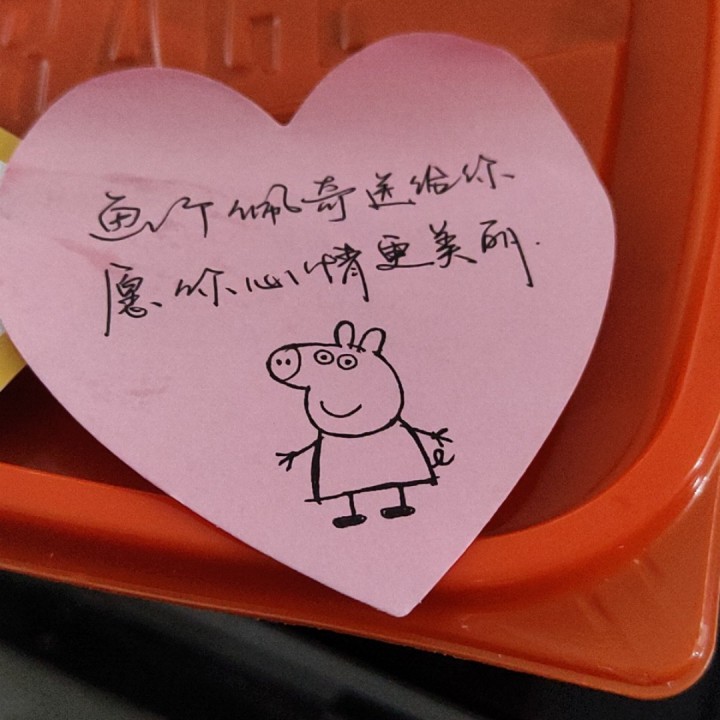 画个佩奇送给你
愿你心情更美丽.